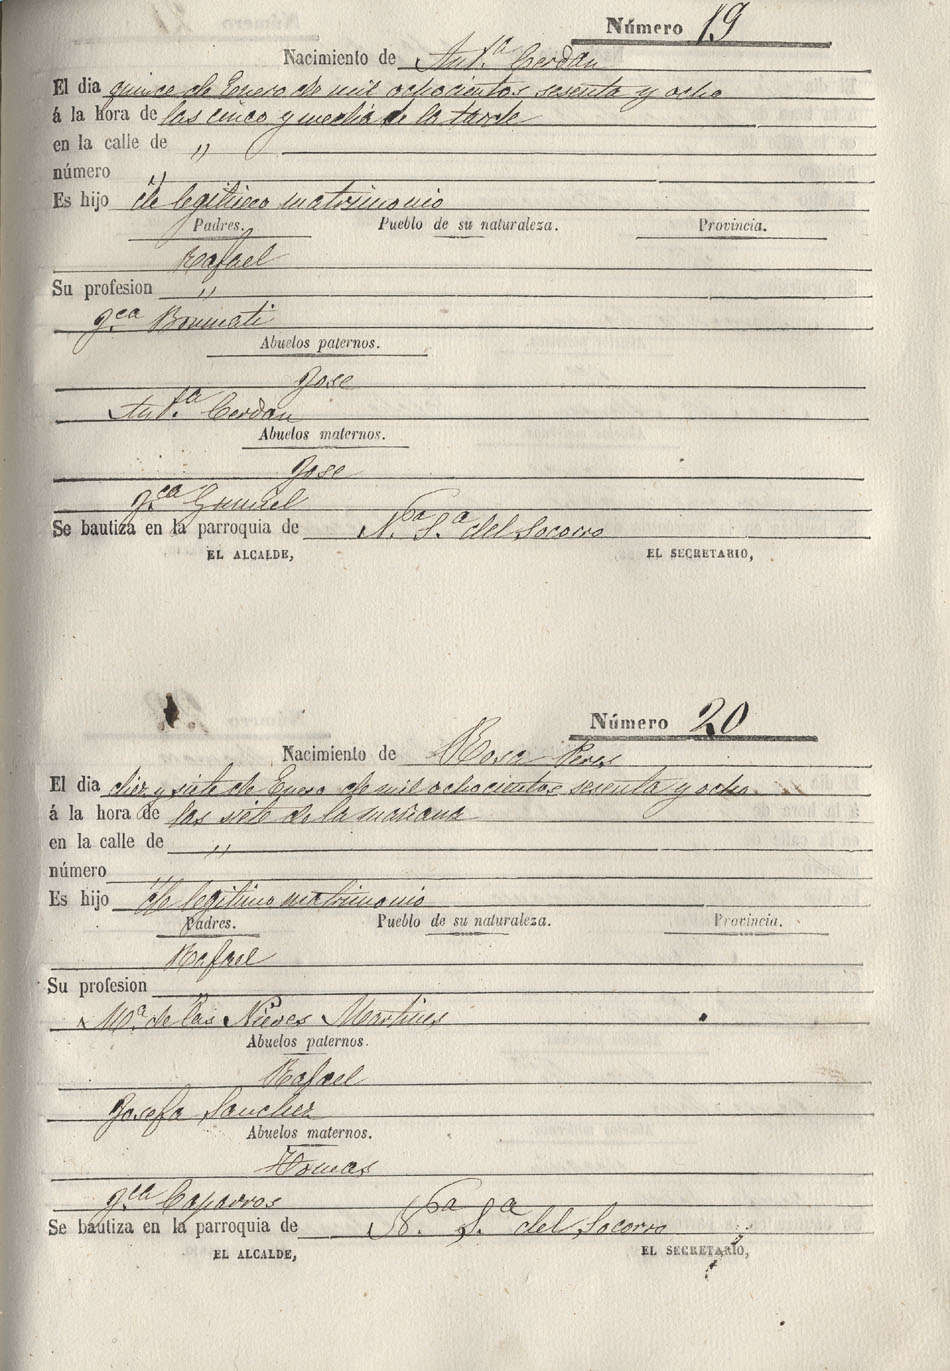 Número 19
Nacimiento de Ant.ª Cerdan
El dia quince de Enero de mil ochocientos sesenta y ocho
á la hora de las cinco y media de la tarde
en la calle de "
número "
Es hijo de legitimo matrimonio
Padres. Pueblo de su naturaleza. Provincia.
Rafael
Su profesion "
Abuelos paternos.
Jose
Ant.ª Cerdan
Abuelos maternos.
Jose
Se bautiza en la parroquia de N.ª S.ª del Socorro
EL ALCALDE, EL SECRETARIO,
Número 20
Nacimiento de Rosa Peres
El dia diez y siete de Enero de mil ochocientos sesenta y ocho
á la hora de las siete de la mañana
en la calle de "
número "
Es hijo de legitimo matrimonio
Padres. Pueblo de su naturaleza. Provincia.
Rafael
Su profesion "
Mª de las Nieves Martines
Abuelos paternos.
Rafael
Josefa Sanchez
Abuelos maternos.
Tomas
Fca Caparros
Se bautiza en la parroquia de N.ª S.ª del Socorro
EL ALCALDE, EL SECRETARIO,